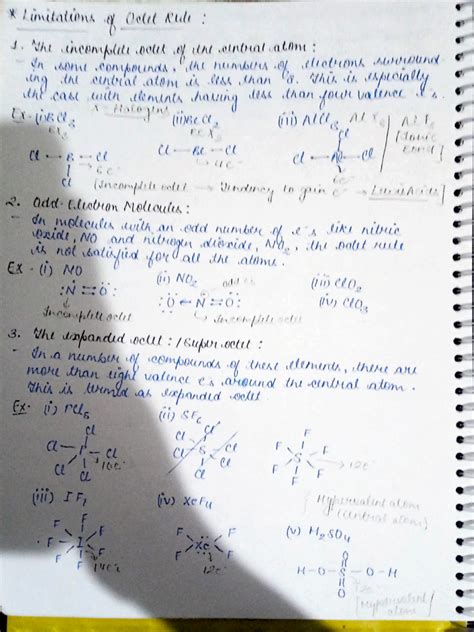 * Limitations of Octet Rule :
1. The incomplete octet of the central atom :
- In some compounds, the numbers of electrons surround
ing the central atom is less than 8. This is especially
the case with elements having less than four valence e⁻s.
X → Halogens
Ex- (i) BCl3 (ii) BeCl2 (iii) AlCl3 AlX3 AlF3
BX3 BeX2 [Ionic
Cl Bond]
Cl — B — Cl Cl — Be — Cl Cl — Al — Cl
6e⁻ 4e⁻ 6e⁻
Cl
(Incomplete octet → Tendency to gain e⁻ → Lewis Acids)
2. Odd-Electron Molecules :
- In molecules with an odd number of e⁻s like nitric
oxide, NO and nitrogen dioxide, NO2, the octet rule
is not satisfied for all the atoms.
Ex - (i) NO (ii) NO2 odd e⁻ (iii) ClO2
N = O O ← N = O (iv) ClO3
Incomplete octet Incomplete octet
3. The expanded octet : / Super octet :
- In a number of compounds of these elements, there are
more than eight valence e⁻s around the central atom.
This is termed as expanded octet.
Ex- (i) PCl5 (ii) SF6
Cl Cl Cl F F
Cl P Cl Cl S Cl F S F → 12e⁻
Cl Cl 10e⁻ Cl Cl F F
(iii) IF7 (iv) XeF4 [Hypervalent atom
(central atom)]
F F F F F (v) H2SO4
F I F Xe O
F F 14e⁻ F F 12e⁻ H - O - S - O - H
O 12e⁻
[Hypervalent
atom]